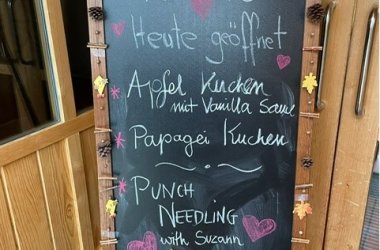 Heute geöffnet
* Apfel Kuchen
mit Vanilla Sauce
* Papagei Kuchen
* PUNCH
NEEDLING
with Suzann